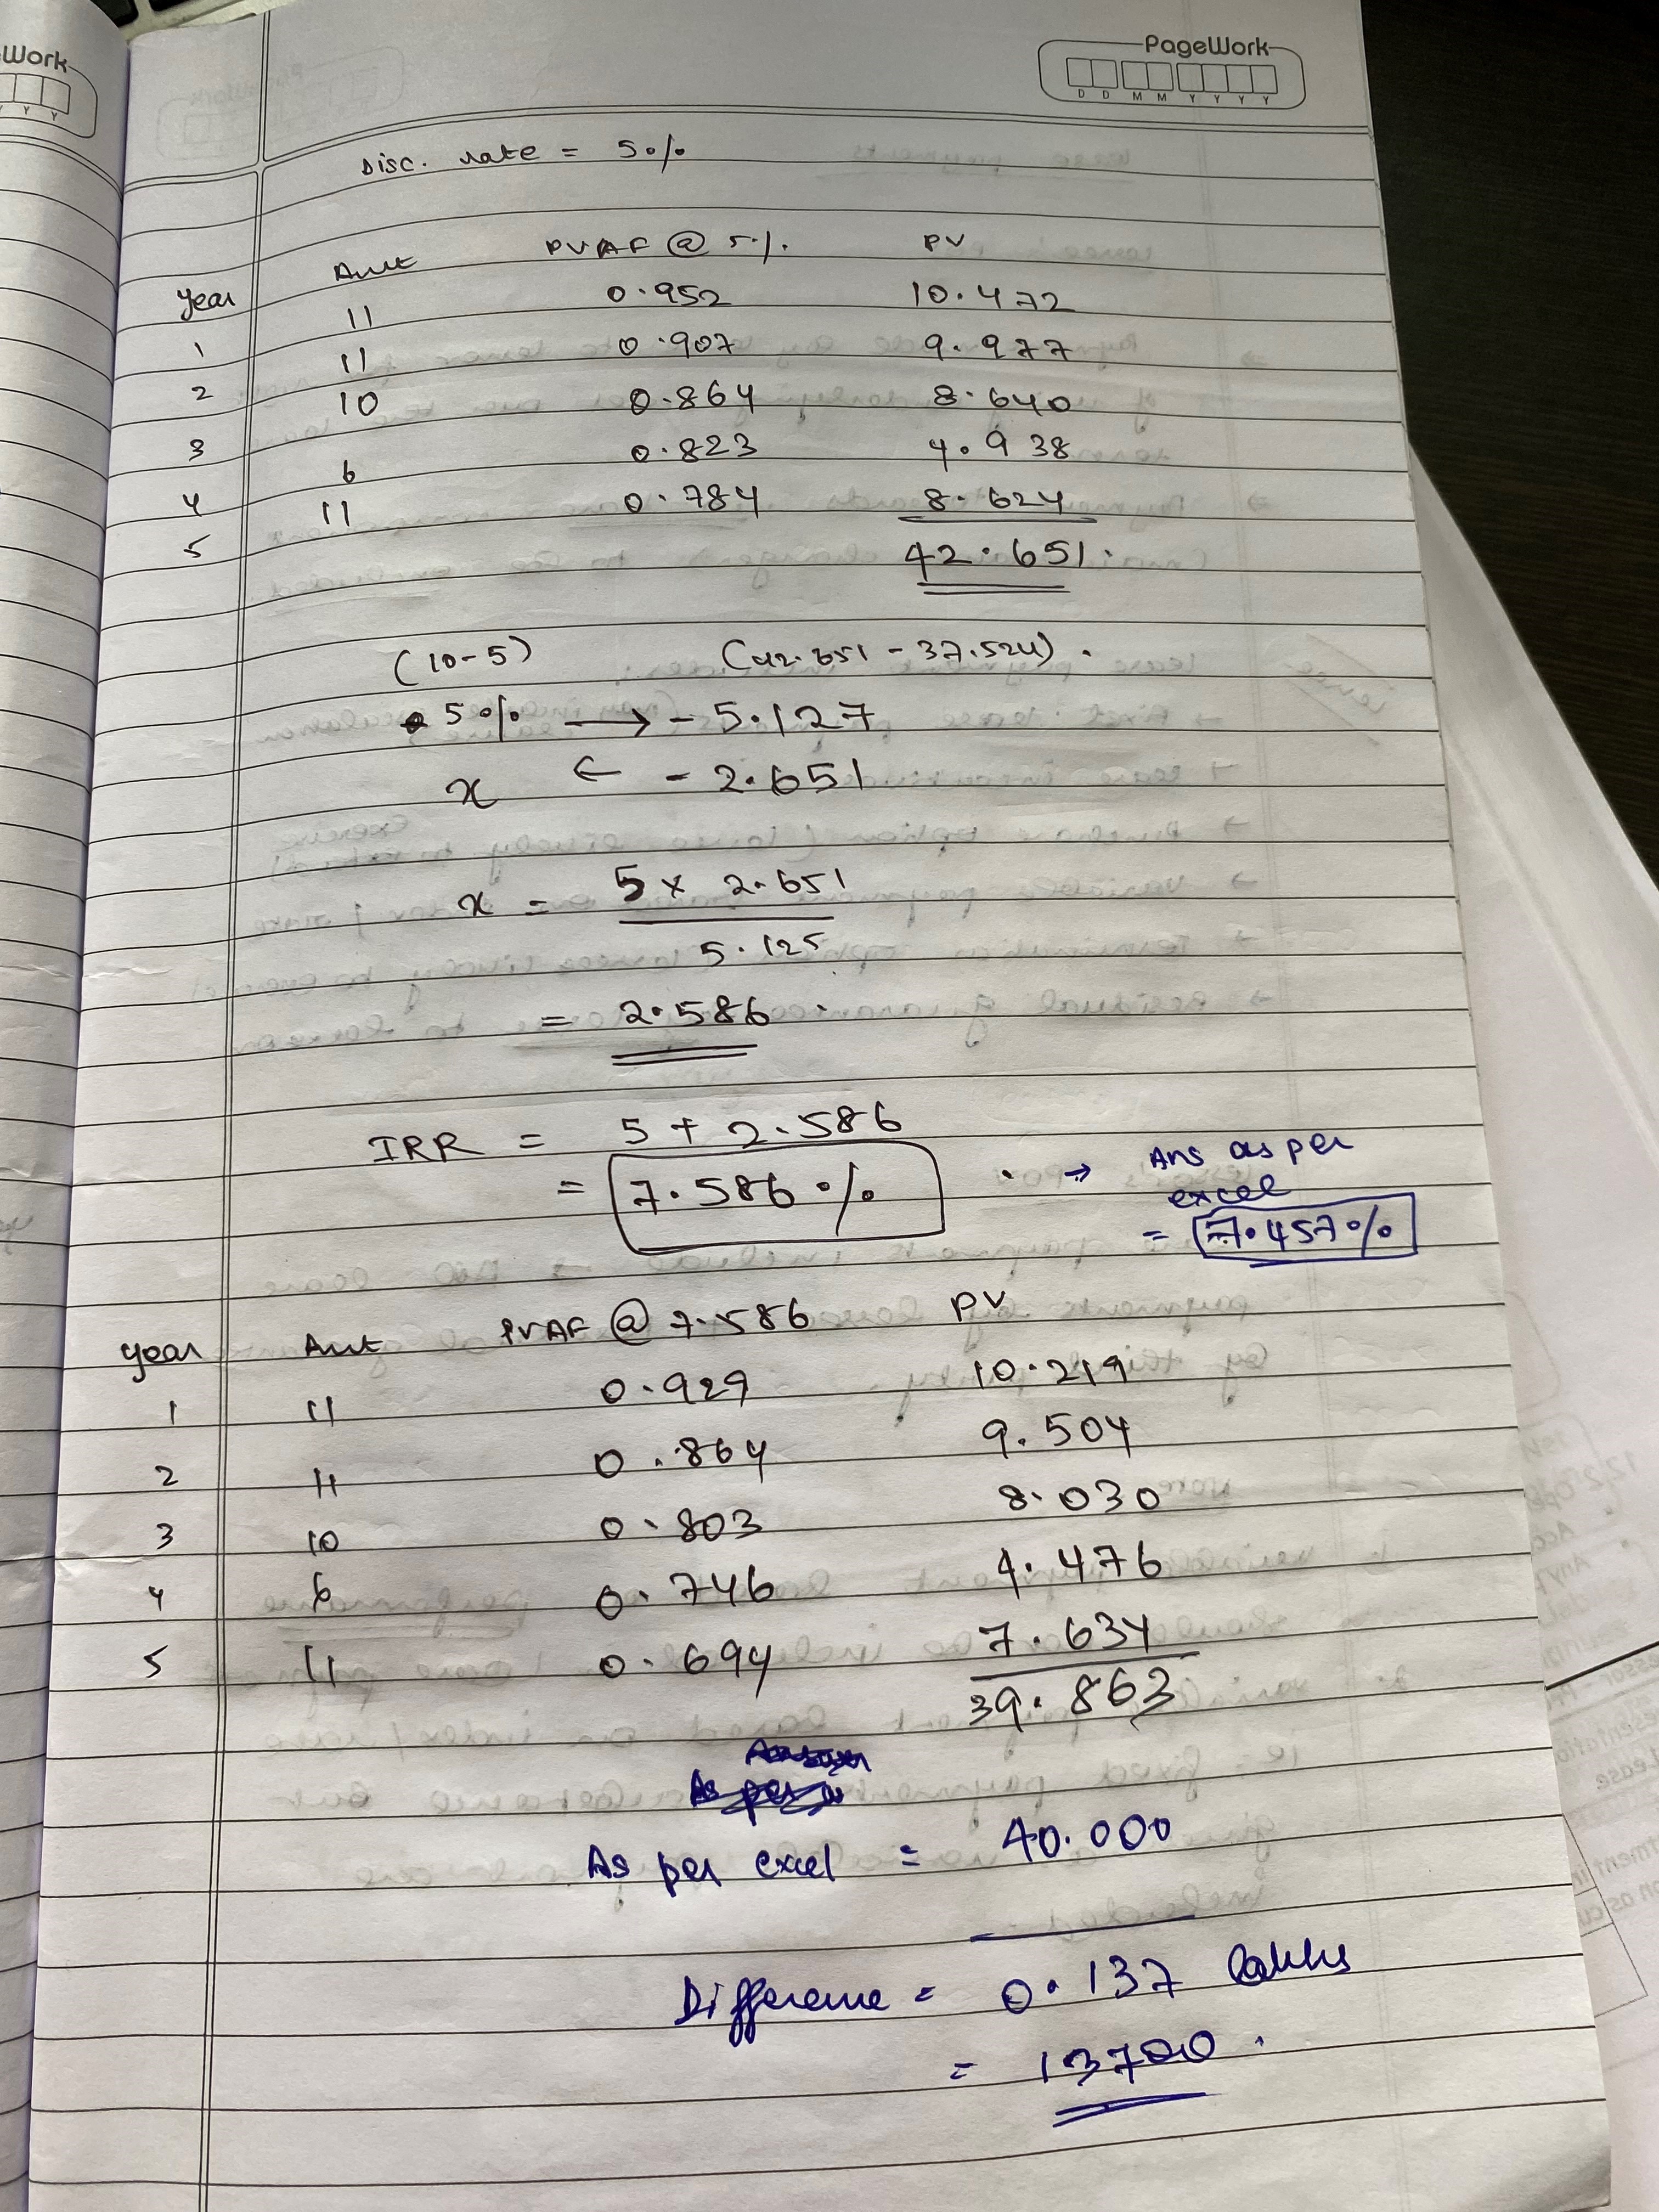 Work
PageWork
D D M M Y Y Y Y
Y Y Y
Disc. rate = 5%
Year Amt PVAF @ 5%. PV
1 11 0.952 10.472
2 11 0.907 9.977
3 10 0.864 8.640
4 6 0.823 4.938
5 11 0.784 8.624
42.651.
(10-5) (42.651 - 37.524).
5% → - 5.127
x ← - 2.651
x = 5 x 2.651
5.125
= 2.586
IRR = 5 + 2.586
= 7.586% → Ans as per
excel
= 7.457%
Year Amt PVAF @ 7.586 PV
1 11 0.929 10.219
2 11 0.864 9.504
3 10 0.803 8.030
4 6 0.746 4.476
5 11 0.694 7.634
39.863
As per
As per excel = 40.000
Difference = 0.137 lakhs
= 13700.